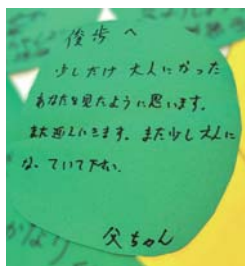 俊歩へ
少しだけ大人になった
あなたを見たように思います。
また逢いにきます。また少し大人に
なっていて下さい。
父ちゃん